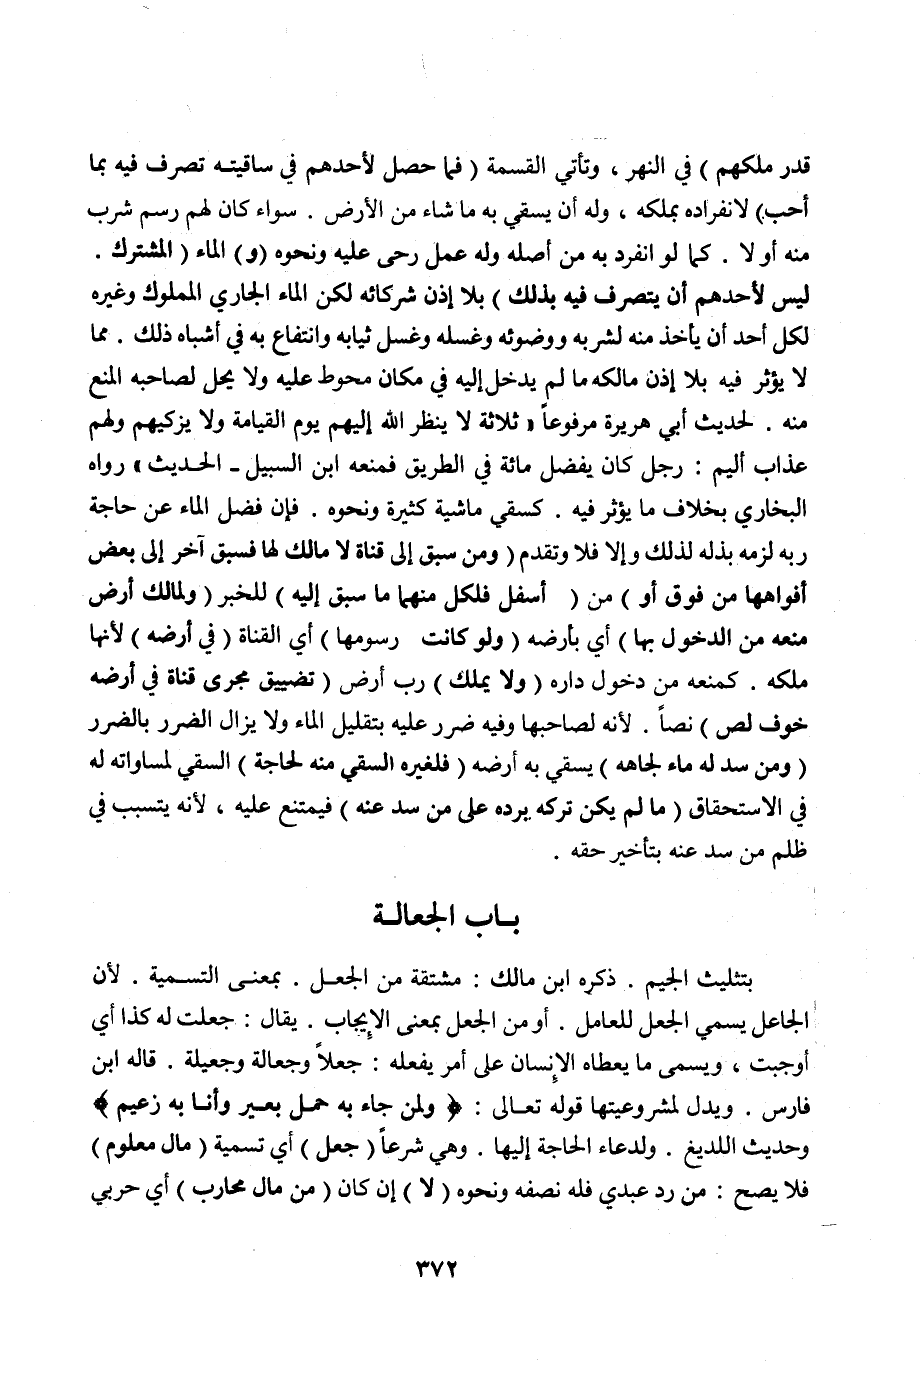 قدر ملكهم ) في النهر ، وتأتي القسمة ( فما حصل لأحدهم في ساقيته تصرف فيه بما
أحب) لانفراده بملكه ، وله أن يسقي به ما شاء من الأرض . سواء كان لهم رسم شرب
منه أو لا . كما لو انفرد به من أصله وله عمل رحى عليه ونحوه (و) الماء ( المشترك .
ليس لأحدهم أن يتصرف فيه بذلك ) بلا إذن شركائه لكن الماء الجاري المملوك وغيره
لكل أحد أن يأخذ منه لشربه ووضوئه وغسله وغسل ثيابه وانتفاع به في أشباه ذلك . مما
لا يؤثر فيه بلا إذن مالكه ما لم يدخل إليه في مكان محوط عليه ولا يحل لصاحبه المنع
منه . لحديث أبي هريرة مرفوعاً « ثلاثة لا ينظر الله إليهم يوم القيامة ولا يزكيهم ولهم
عذاب أليم : رجل كان يفضل مائة في الطريق فمنعه ابن السبيل - الحديث » رواه
البخاري بخلاف ما يؤثر فيه . كسقي ماشية كثيرة ونحوه . فإن فضل الماء عن حاجة
ربه لزمه بذله لذلك وإلا فلا وتقدم ( ومن سبق إلى قناة لا مالك لها فسبق آخر إلى بعض
أفواهها من فوق أو ) من ( أسفل فلكل منهما ما سبق إليه ) للخبر ( ولمالك أرض
منعه من الدخول بها ) أي بأرضه ( ولو كانت رسومها ) أي القناة ( في أرضه ) لأنها
ملكه . كمنعه من دخول داره ( ولا يملك ) رب أرض ( تضييق مجرى قناة في أرضه
خوف لص ) نصاً . لأنه لصاحبها وفيه ضرر عليه بتقليل الماء ولا يزال الضرر بالضرر
( ومن سد له ماء لجاهه ) يسقي به أرضه ( فلغيره السقي منه لحاجة ) السقي لمساواته له
في الاستحقاق ( ما لم يكن تركه يرده على من سد عنه ) فيمتنع عليه ، لأنه يتسبب في
ظلم من سد عنه بتأخير حقه .
بـاب الجعالـة
بتثليث الجيم . ذكره ابن مالك : مشتقة من الجعـل . بمعنـى التسـمية . لأن
الجاعل يسمي الجعل للعامل . أو من الجعل بمعنى الإيجاب . يقال : جعلت له كذا أي
أوجبت ، ويسمى ما يعطاه الإنسان على أمر يفعله : جعلاً وجعالة وجعيلة . قاله ابن
فارس . ويدل لمشروعيتها قوله تعـالى : ﴿ ولمن جاء به حمـل بعـير وأنـا به زعيم ﴾
وحديث اللديغ . ولدعاء الحاجة إليها . وهي شرعاً ( جعل ) أي تسمية ( مال معلوم )
فلا يصح : من رد عبدي فله نصفه ونحوه ( لا ) إن كان ( من مال محارب ) أي حربي
٣٧٢